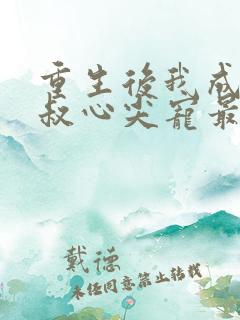 重生後我成
叔心尖寵最
戴德
未經同意禁止轉載